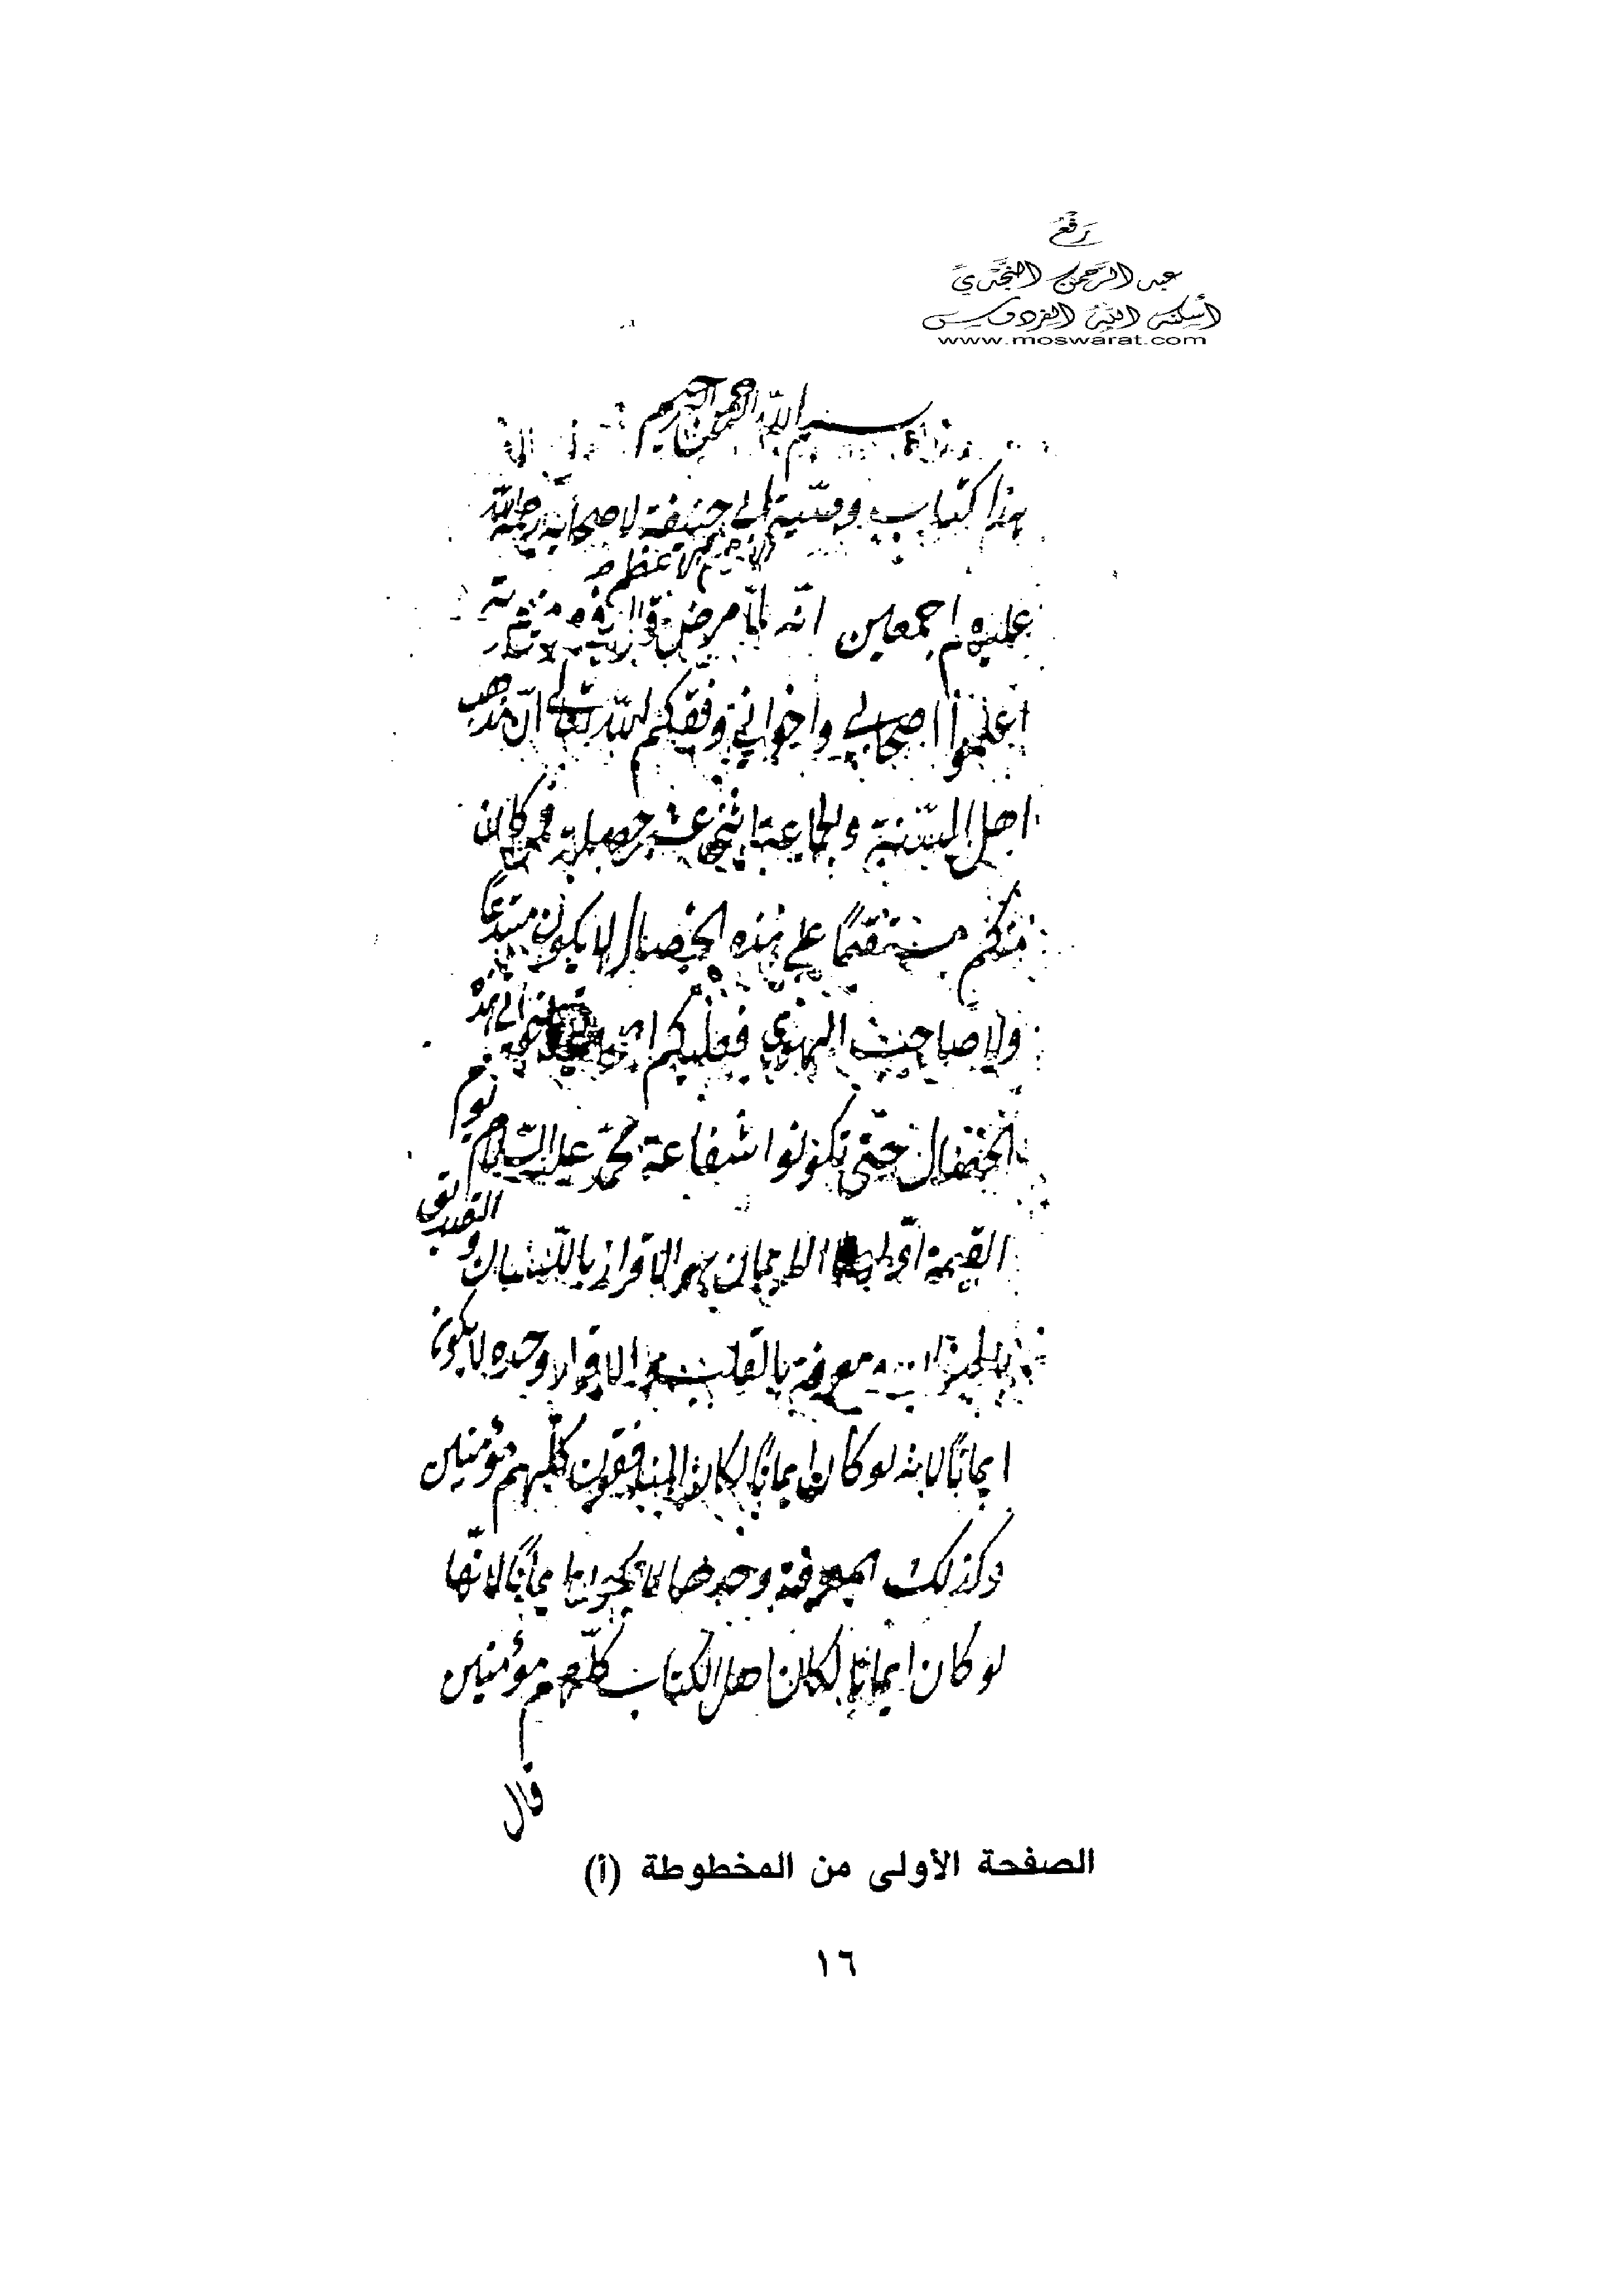 رفع
عبد الرحمن النجدي
أسكنه الله الفردوس
www.moswarat.com
بسم الله الرحمن الرحيم
هذا كتاب وصية ابي حنيفة لاصحابه رحمة الله
الاعظم
عليهم اجمعين انه لما مرض قال
اعلموا اصحابي واخواني وفقكم الله تعالى ان مذهب
اهل السنة والجماعة اثنى عشر خصلة فمن كان
منكم مستقيما على هذه الخصال لا يكون مبتدعا
ولا صاحب الهوى فعليكم هذه
الخصال حتى تكونوا شفاعة محمد عليه السلام يوم
القيمة اولها الايمان هو الاقرار باللسان و التصديق
بالجنان ومعرفة بالقلب والاقرار وحده لا يكون
ايمانا لانه لو كان ايمانا لكان المنافقون كلهم مؤمنين
وكذلك المعرفة وحدها لا يكون ايمانا لانها
لو كان ايمانا لكان اهل الكتاب كلهم مؤمنين
قال
الصفحة الأولى من المخطوطة (أ)
١٦